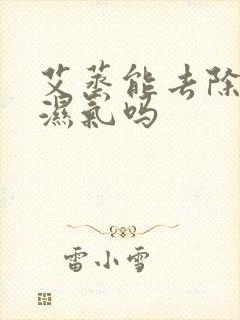 艾蒸能去除
濕氣吗
雷小雪